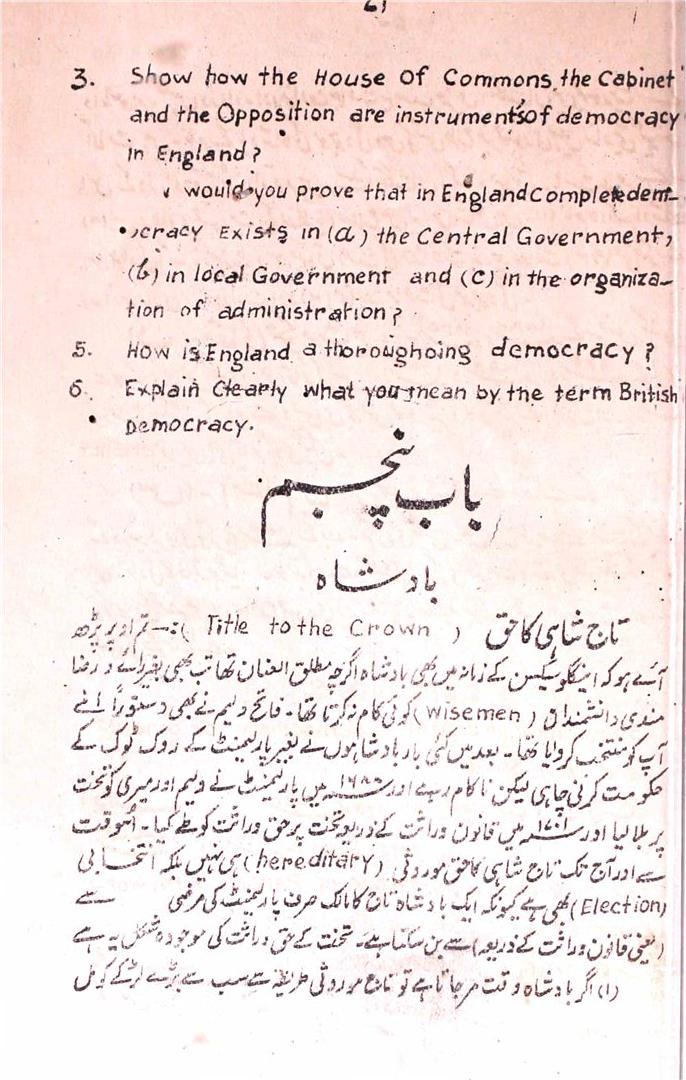 3. Show how the House Of Commons, the Cabinet
and the Opposition are instruments of democracy
in England?
would you prove that in England Complete dem-
ocracy Exists in (a) the Central Government,
(b) in local Government and (c) in the organiza-
tion of administration?
5. How is England a thoroughoing democracy?
6. Explain Clearly what you mean by the term British
Democracy.
باب پنجم
بادشاہ
تاج شاہی کا حق (Title to the Crown) :— تم اوپر پڑھ
آئے ہو کہ اینگلو سیکسن کے زمانہ میں بھی بادشاہ اگرچہ مطلق العنان تھا تب بھی بغیر رائے و رضا
مندی دانشمندان (wisemen) کوئی کام نہ کرتا تھا۔ فاتح ولیم نے بھی دستوراً اپنے
آپ کو منتخب کروایا تھا۔ بعد میں کئی بار بادشاہوں نے بغیر پارلیمنٹ کے روک ٹوک کے
حکومت کرنی چاہی لیکن ناکام رہے اور ۱۶۸۸ میں پارلیمنٹ نے ولیم اور میری کو تخت
پر بلا لیا اور ۱۷۰۱ میں قانون وراثت کے ذریعہ تخت پر حق وراثت کو طے کیا۔ اسوقت
سے اور آج تک تاج شاہی کا حق موروثی (hereditary) ہی نہیں بلکہ انتخابی
(Election) بھی ہے کیونکہ ایک بادشاہ تاج کا مالک صرف پارلیمنٹ کی مرضی سے
(یعنی قانون وراثت کے ذریعہ) سے بن سکتا ہے۔ تخت کے حق وراثت کی موجودہ شکل یہ ہے
(۱) اگر بادشاہ وقت مر جاتا ہے تو تاج موروثی طریقہ سے سب سے بڑے لڑکے کو مل